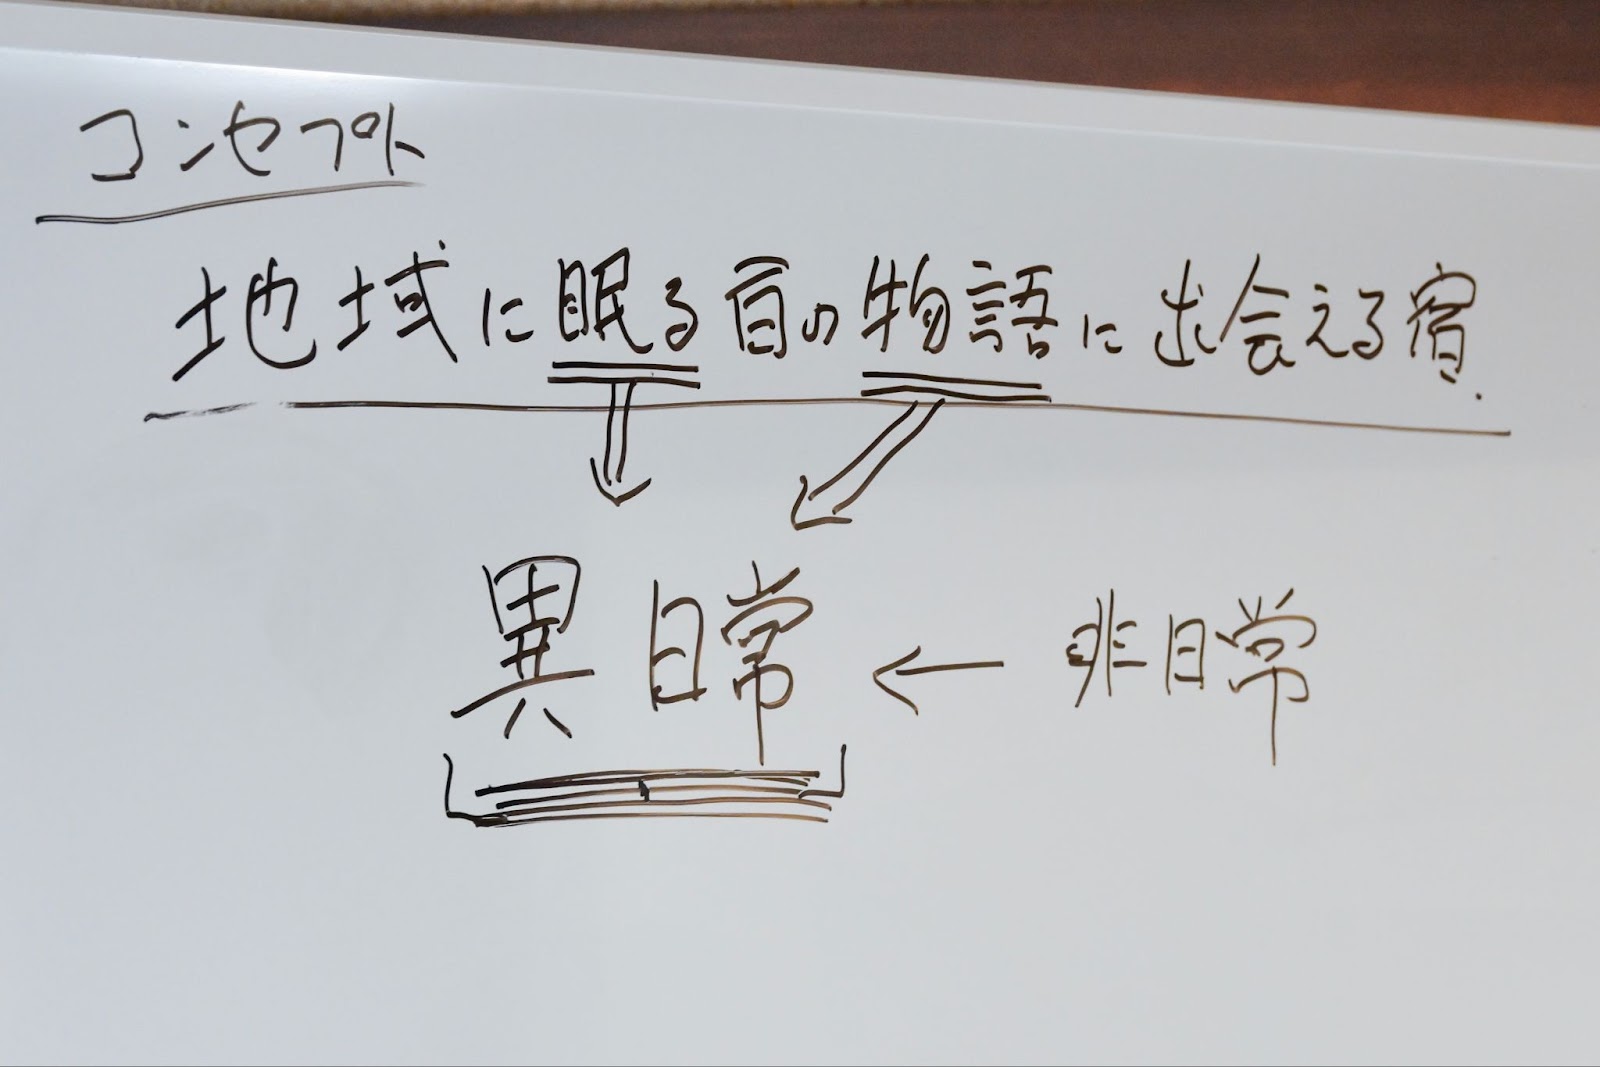 コンセプト
地域に眠る百の物語に出会える宿.
異日常 ← 非日常